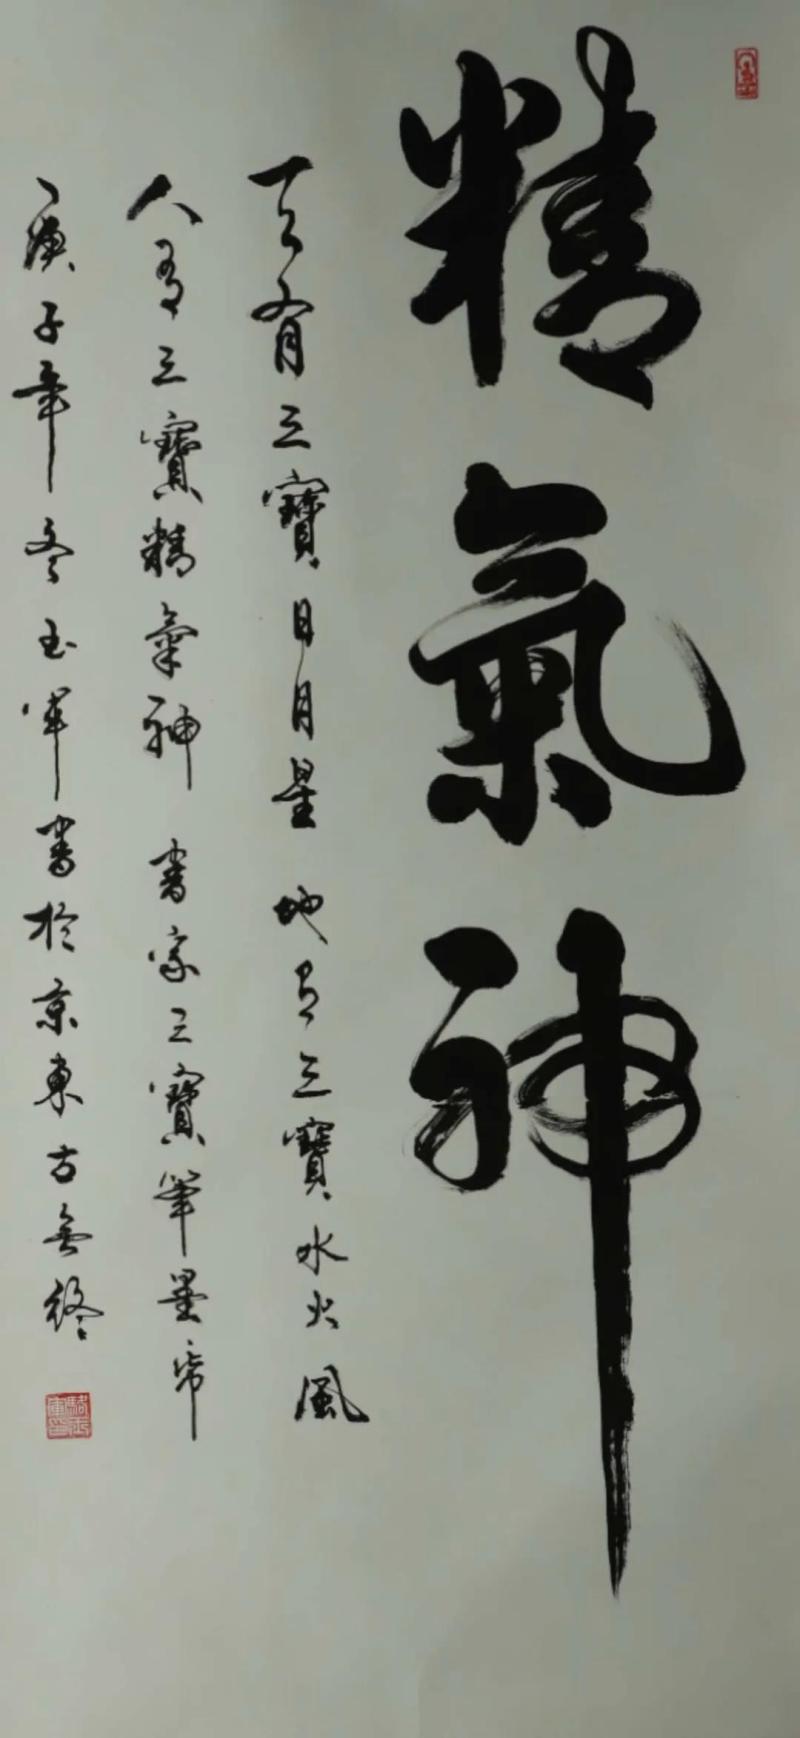 精氣神
天有三寶日月星 地有三寶水火風
人有三寶精氣神 書家三寶筆墨帋
庚子年冬玉軍書於京東古無終